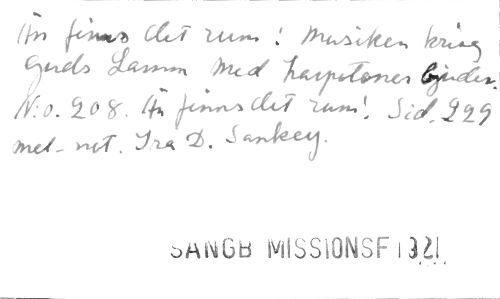 Än finns det rum! Musiken kring
Guds Lamm med harpotoner bjuder.
N:o. 208. Än finns det rum! Sid. 229
mel-not. Ira D. Sankey.
SANGB MISSIONSF 1921